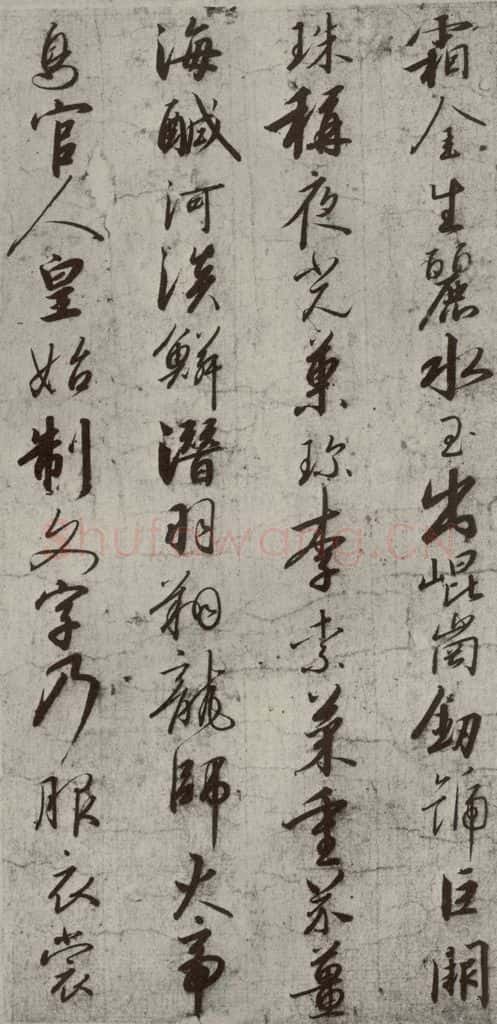 霜金生麗水玉出崐崗釼號巨闕
珠稱夜光菓珍李柰菜重芥薑
海醎河淡鱗潛羽翔龍師火帝
鳥官人皇始制文字乃服衣裳
Shufawang.CN